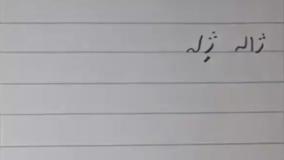 ژاله ژله